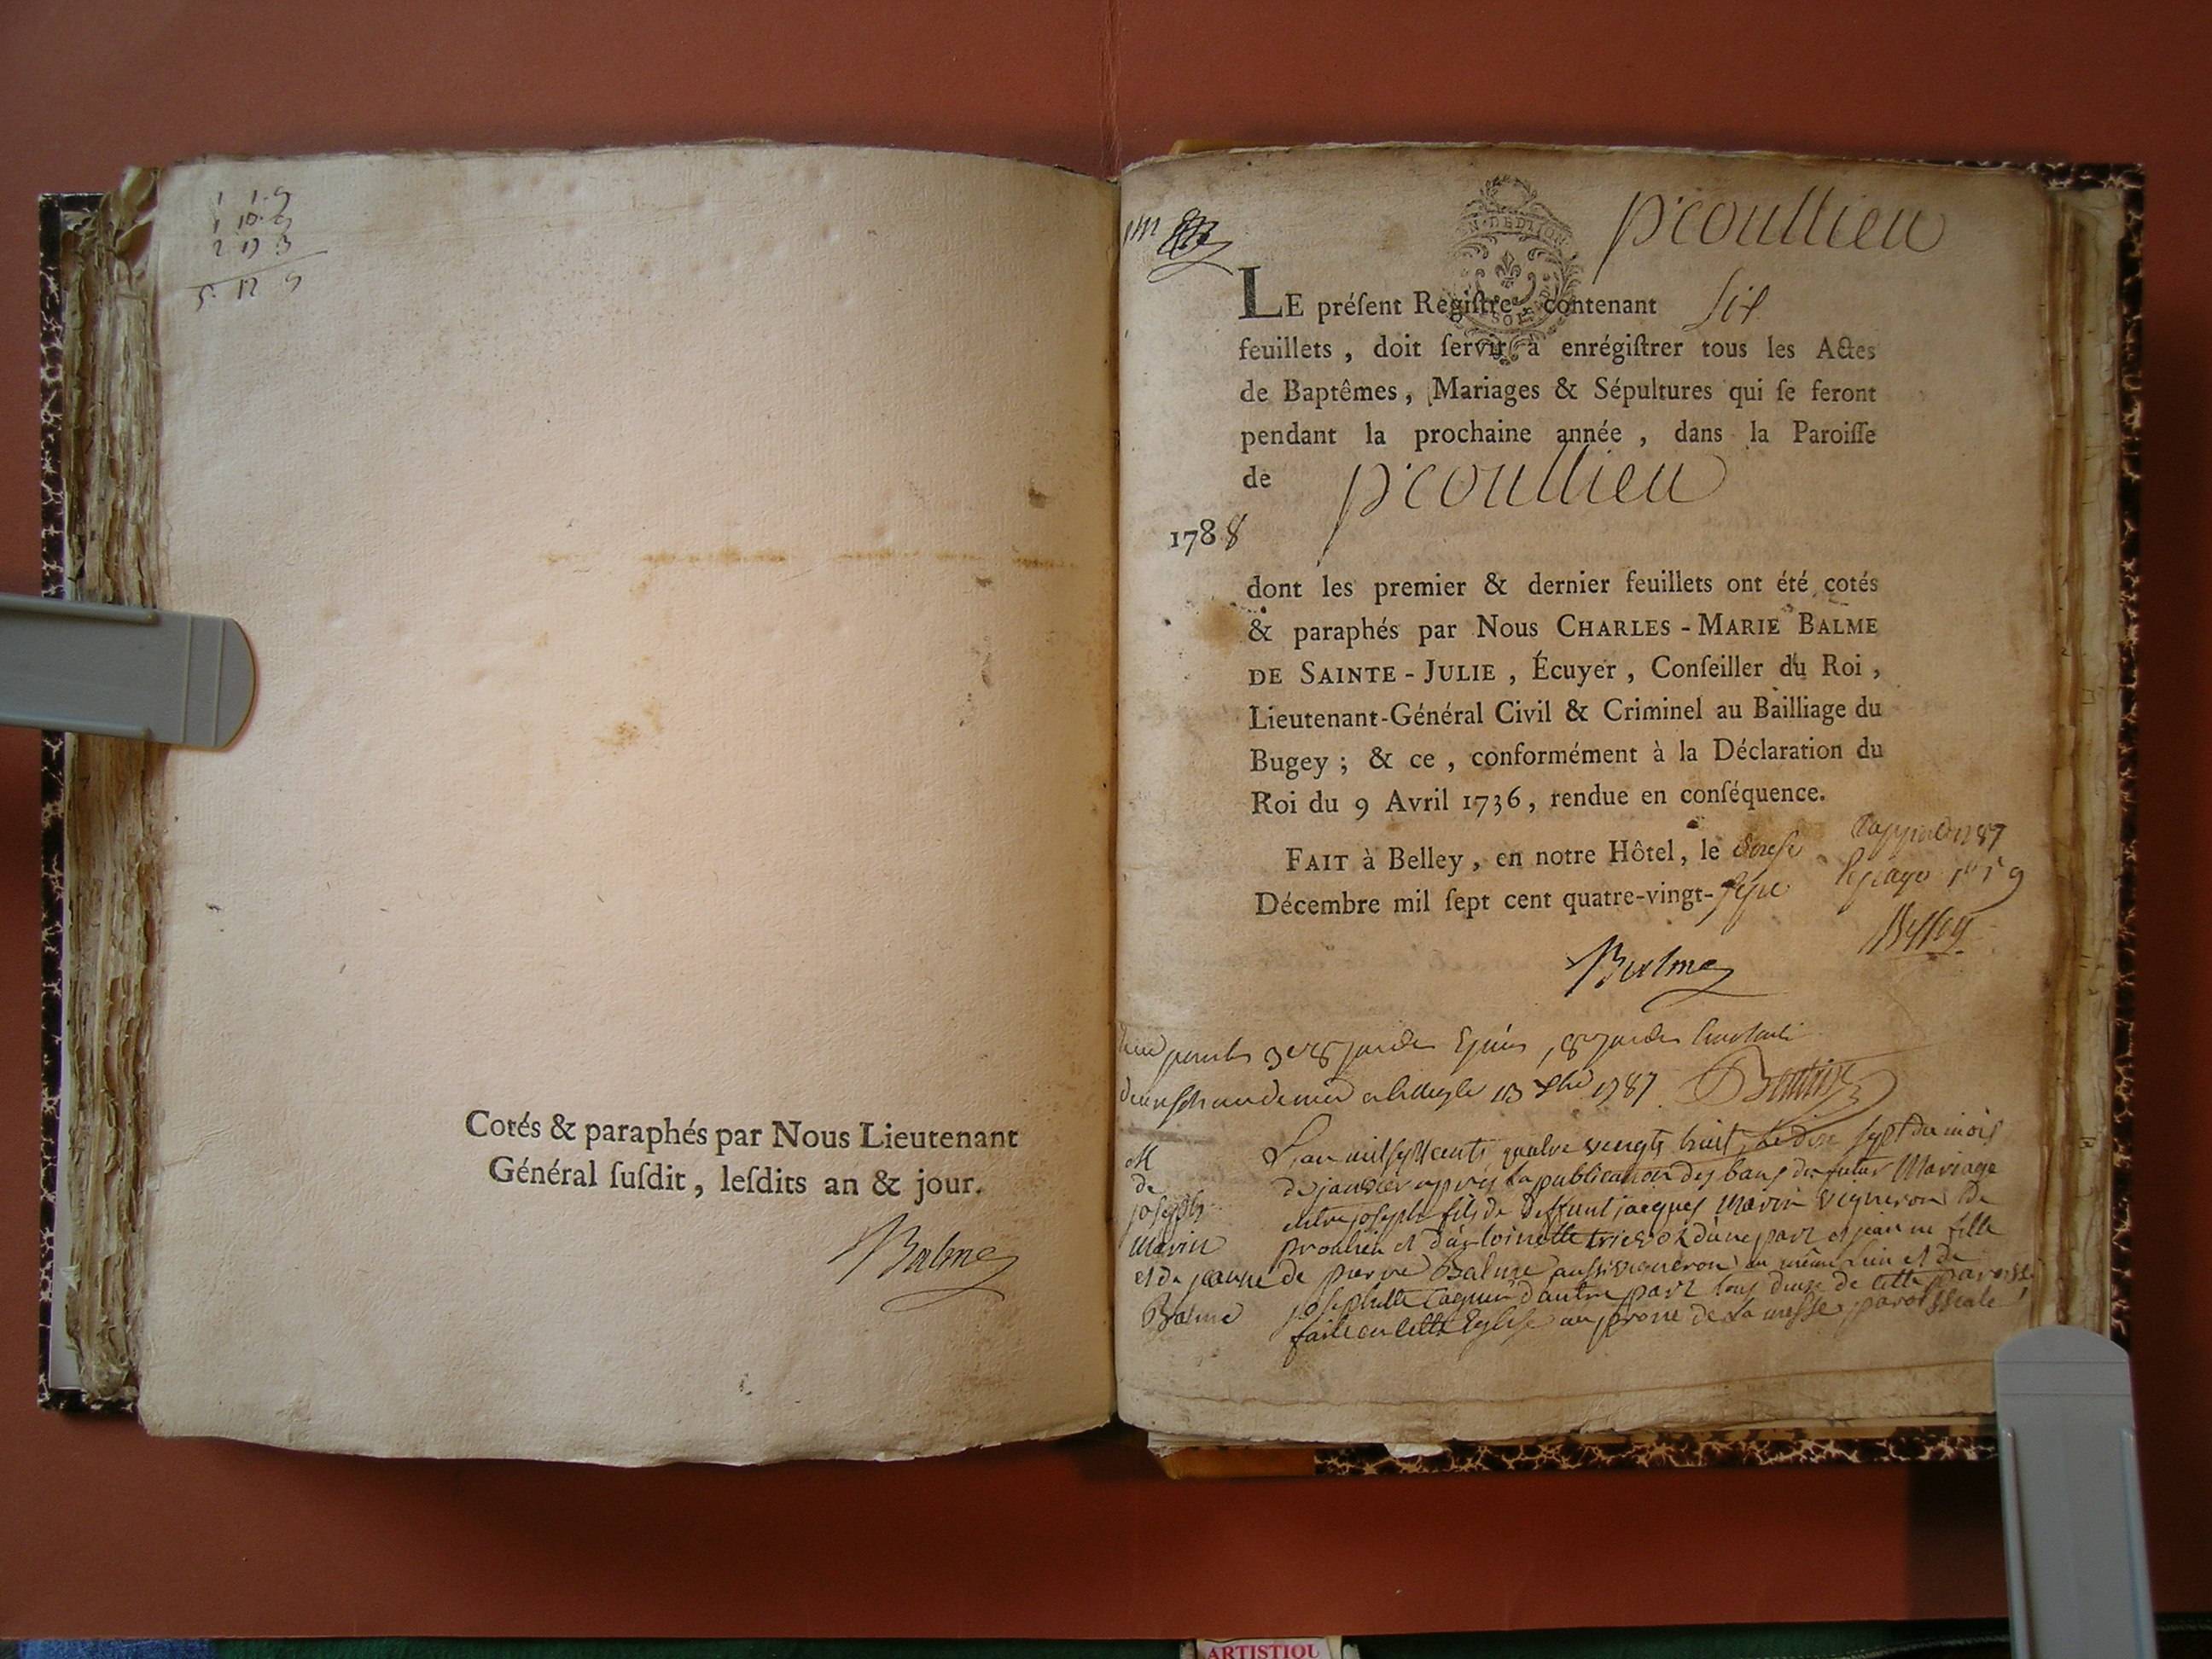 1 1. 9
1 10. 9
2 19 3
5. 12 9
Cotés & paraphés par Nous Lieutenant
Général ſuſdit, leſdits an & jour.
Balme
p'coullieu
LE préſent Regiſtre, contenant six
feuillets, doit ſervir à enrégiſtrer tous les Actes
de Baptêmes, Mariages & Sépultures qui ſe feront
pendant la prochaine année, dans la Paroiſſe
de p'coullieu
1788
dont les premier & dernier feuillets ont été cotés
& paraphés par Nous CHARLES-MARIE BALME
DE SAINTE-JULIE, Écuyer, Conſeiller du Roi,
Lieutenant-Général Civil & Criminel au Bailliage du
Bugey; & ce, conformément à la Déclaration du
Roi du 9 Avril 1736, rendue en conſéquence.
FAIT à Belley, en notre Hôtel, le
Décembre mil ſept cent quatre-vingt-sept
Balme
1787
L'an mil sept cents quatre vingts huit, Le dix sept du mois
de janvier après la publication des bans du futur Mariage
entre joseph fils de deffunt jacques Marin vigneron de
proulieu et d'antoinette d'une part et jeanne fille
de pierre Balme aussi vigneron du même lieu et de
d'autre part tous deux de cette paroisse
faite en cette Eglise au prone de La messe paroissiale
M
de
joseph
Marin
et de jeanne
Balme
ARTISTIQU